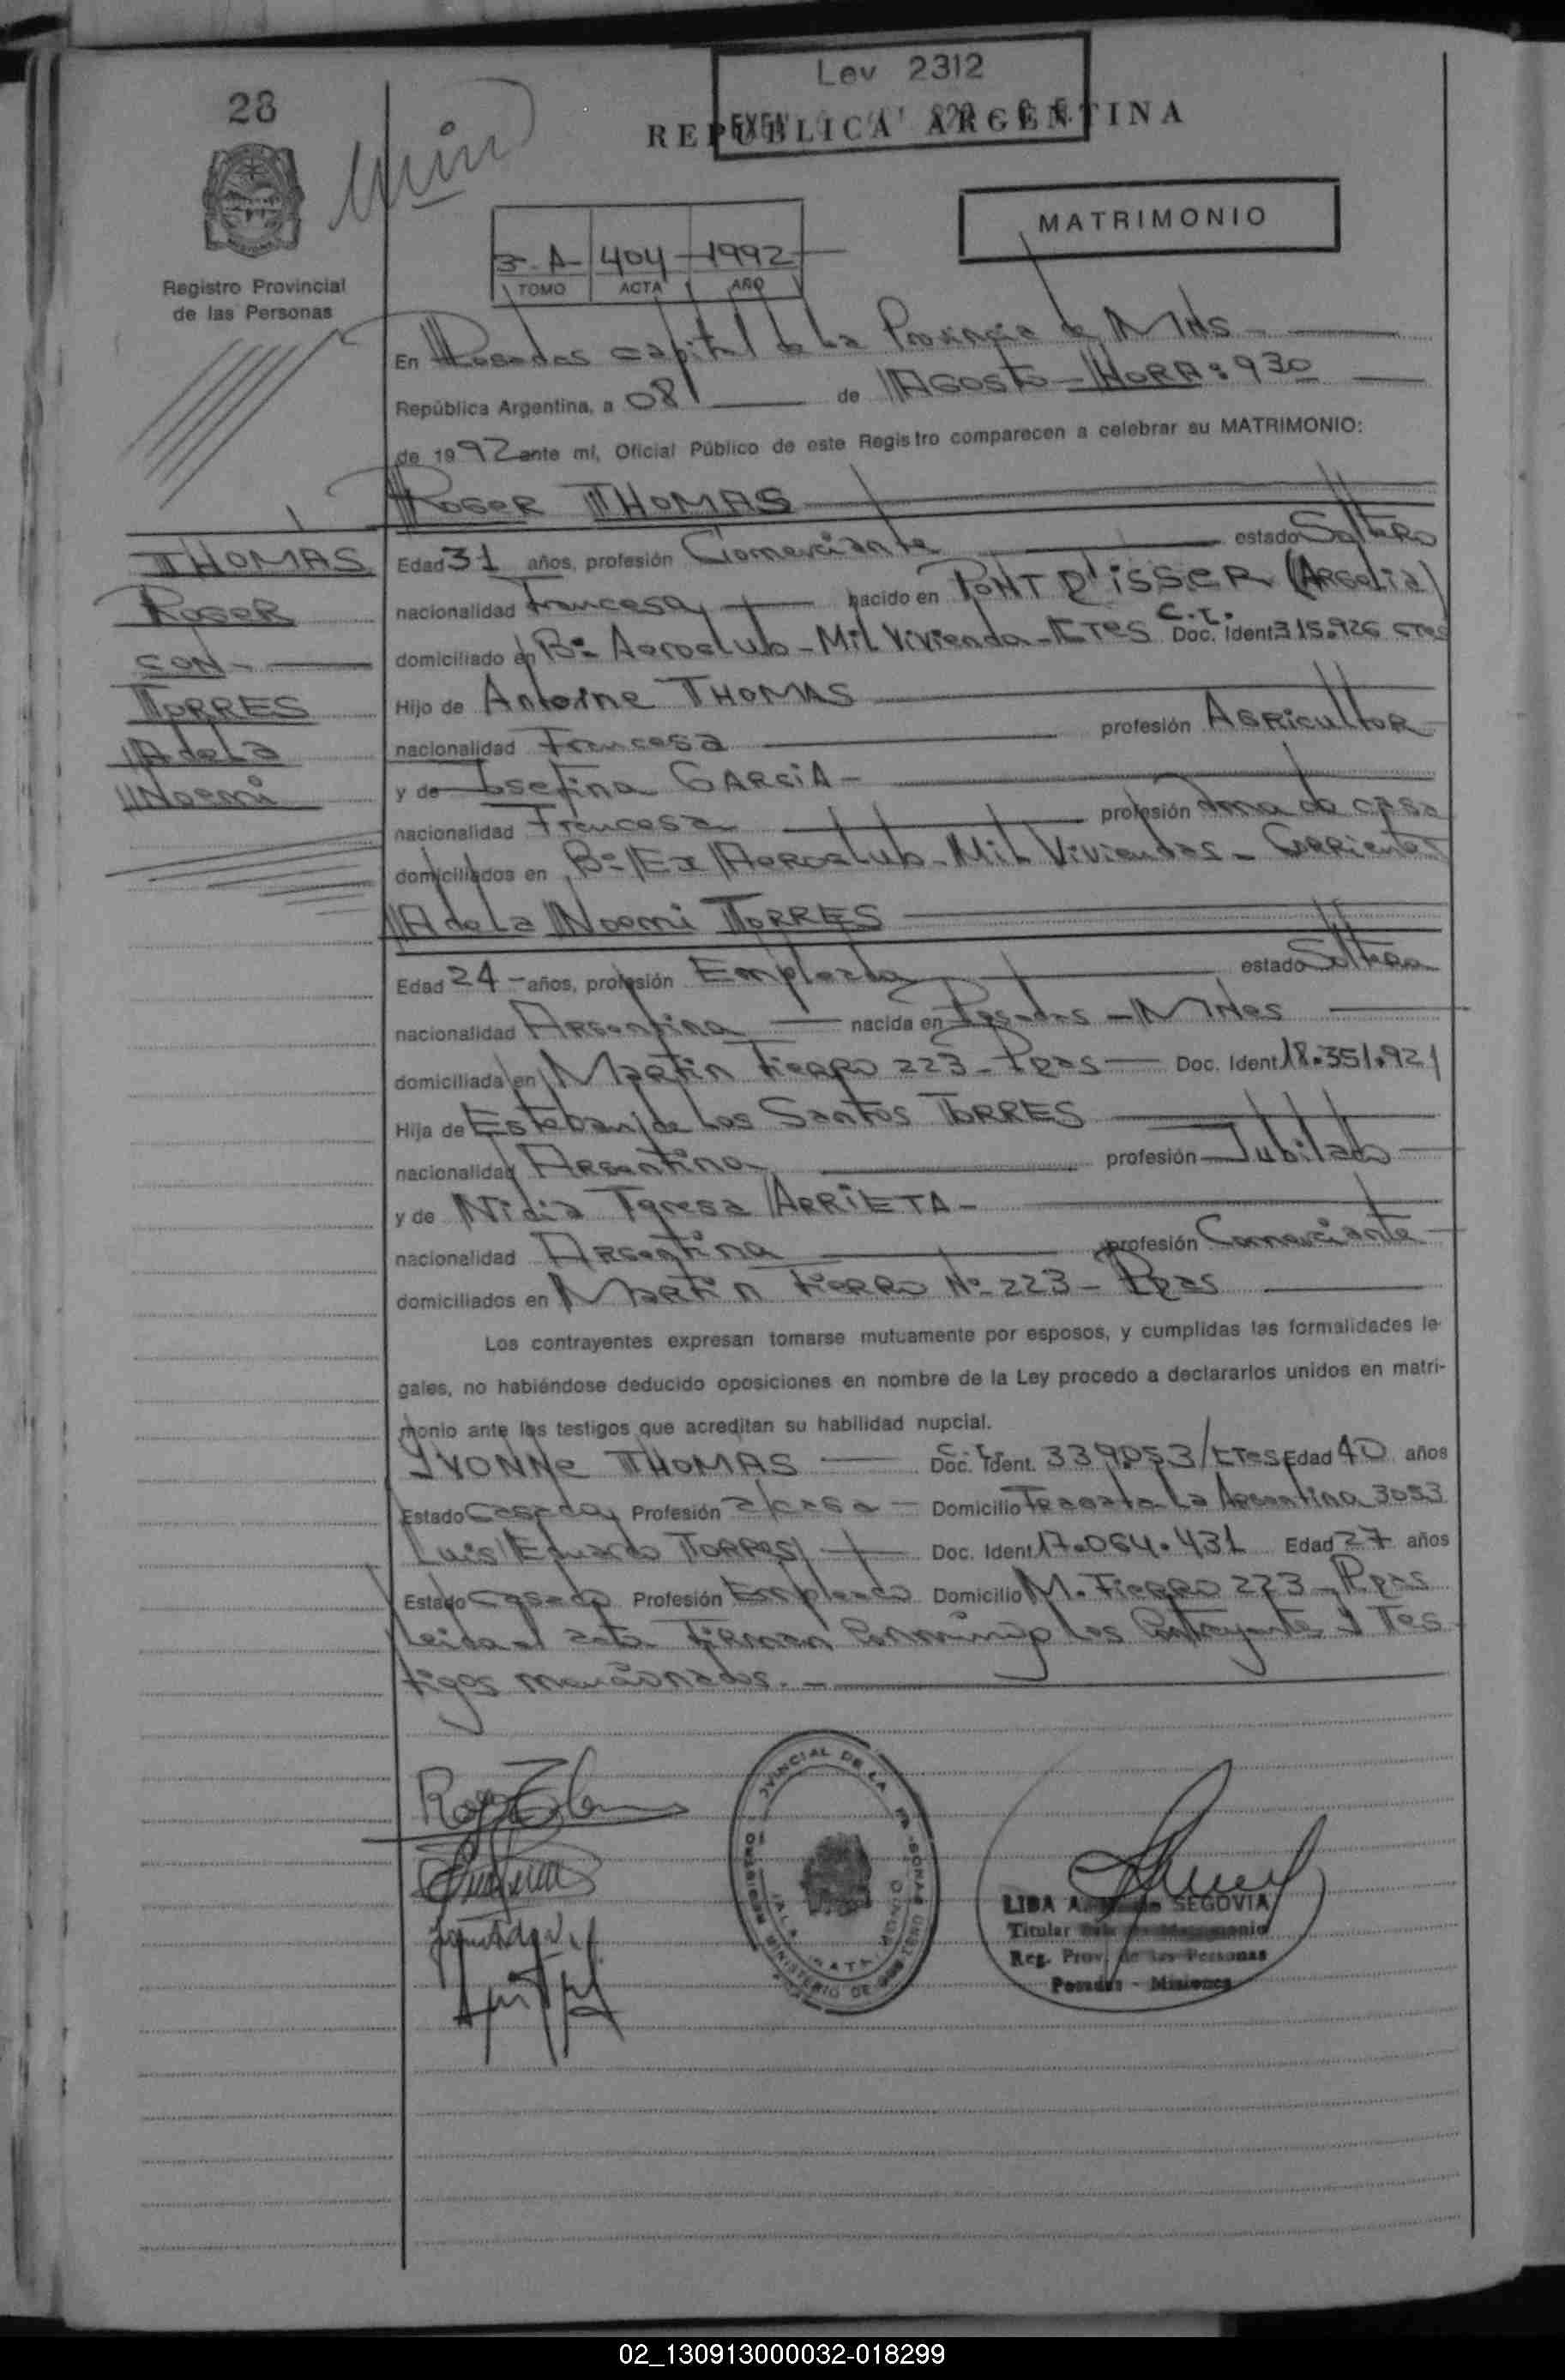 Ley 2312
28
REPUBLICA ARGENTINA
MATRIMONIO
3-A- 404 - 1992
TOMO ACTA AÑO
Registro Provincial
de las Personas
En Posadas capital de La Provincia de Mnes
República Argentina, a 08 de AGOSTO - HORA: 930
de 1992 ante mí, Oficial Público de este Registro comparecen a celebrar su MATRIMONIO:
ROGER THOMAS
THOMAS
ROGER
CON -
TORRES
Adela
Noemi
Edad 31 años, profesión Comerciante estado Soltero
nacionalidad Francesa nacido en PONT D'ISSER (ARgelia)
domiciliado en Bº Aeroclub - Mil Vivienda - CTES C.I. Doc. Ident 315.926 CTES
Hijo de Antoine THOMAS
nacionalidad Francesa profesión AGRicultor
y de Josefina GARCIA -
nacionalidad Francesa profesión Ama de casa
domiciliados en Bº Ex Aeroclub - Mil Viviendas - Corrientes
Adela Noemi TORRES
Edad 24 - años, profesión Empleada estado Soltera
nacionalidad Argentina nacida en Posadas - Mnes
domiciliada en Martin Fierro 223 - Pdas Doc. Ident 18.351.921
Hija de Esteban de Los Santos TORRES
nacionalidad Argentina profesión Jubilado
y de Nidia Teresa ARRIETA -
nacionalidad Argentina profesión Comerciante
domiciliados en Martin Fierro Nº 223 - Pdas
Los contrayentes expresan tomarse mutuamente por esposos, y cumplidas las formalidades le-
gales, no habiéndose deducido oposiciones en nombre de la Ley procedo a declararlos unidos en matri-
monio ante los testigos que acreditan su habilidad nupcial.
YVONNE THOMAS C.I. Doc. Ident. 339.053/CTES Edad 40 años
Estado Casada Profesión a/casa - Domicilio Fragata La Argentina 3053
Luis Eduardo TORRES Doc. Ident 17.064.431 Edad 27 años
Estado Casado Profesión Empleado Domicilio M. Fierro 223 - Pdas
Leida el acta Firman Conmigo los Contrayentes y Tes
tigos mencionados. -
LIDA SEGOVIA
Titular
Reg. Prov. de las Personas
Posadas - Misiones
02_130913000032-018299